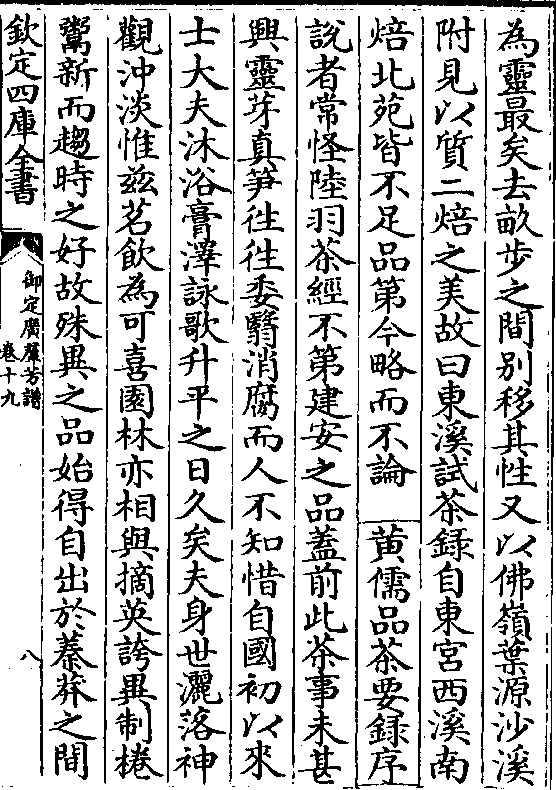 為靈最矣去畝步之間別移其性又以佛嶺葉源沙溪
附見以質二焙之美故曰東溪試茶錄自東宮西溪南
焙北苑皆不足品第今略而不論 黃儒品茶要錄序
說者常怪陸羽茶經不第建安之品蓋前此茶事未甚
興靈芽真笋徃徃委翳消腐而人不知惜自國初以來
士大夫沐浴膏澤詠歌升平之日久矣夫身世灑落神
觀沖淡惟兹茗飲為可喜園林亦相與摘英誇異制棬
鬻新而趨時之好故殊異之品始得自出於蓁莽之間
欽定四庫全書
御定廣羣芳譜
卷十九
八